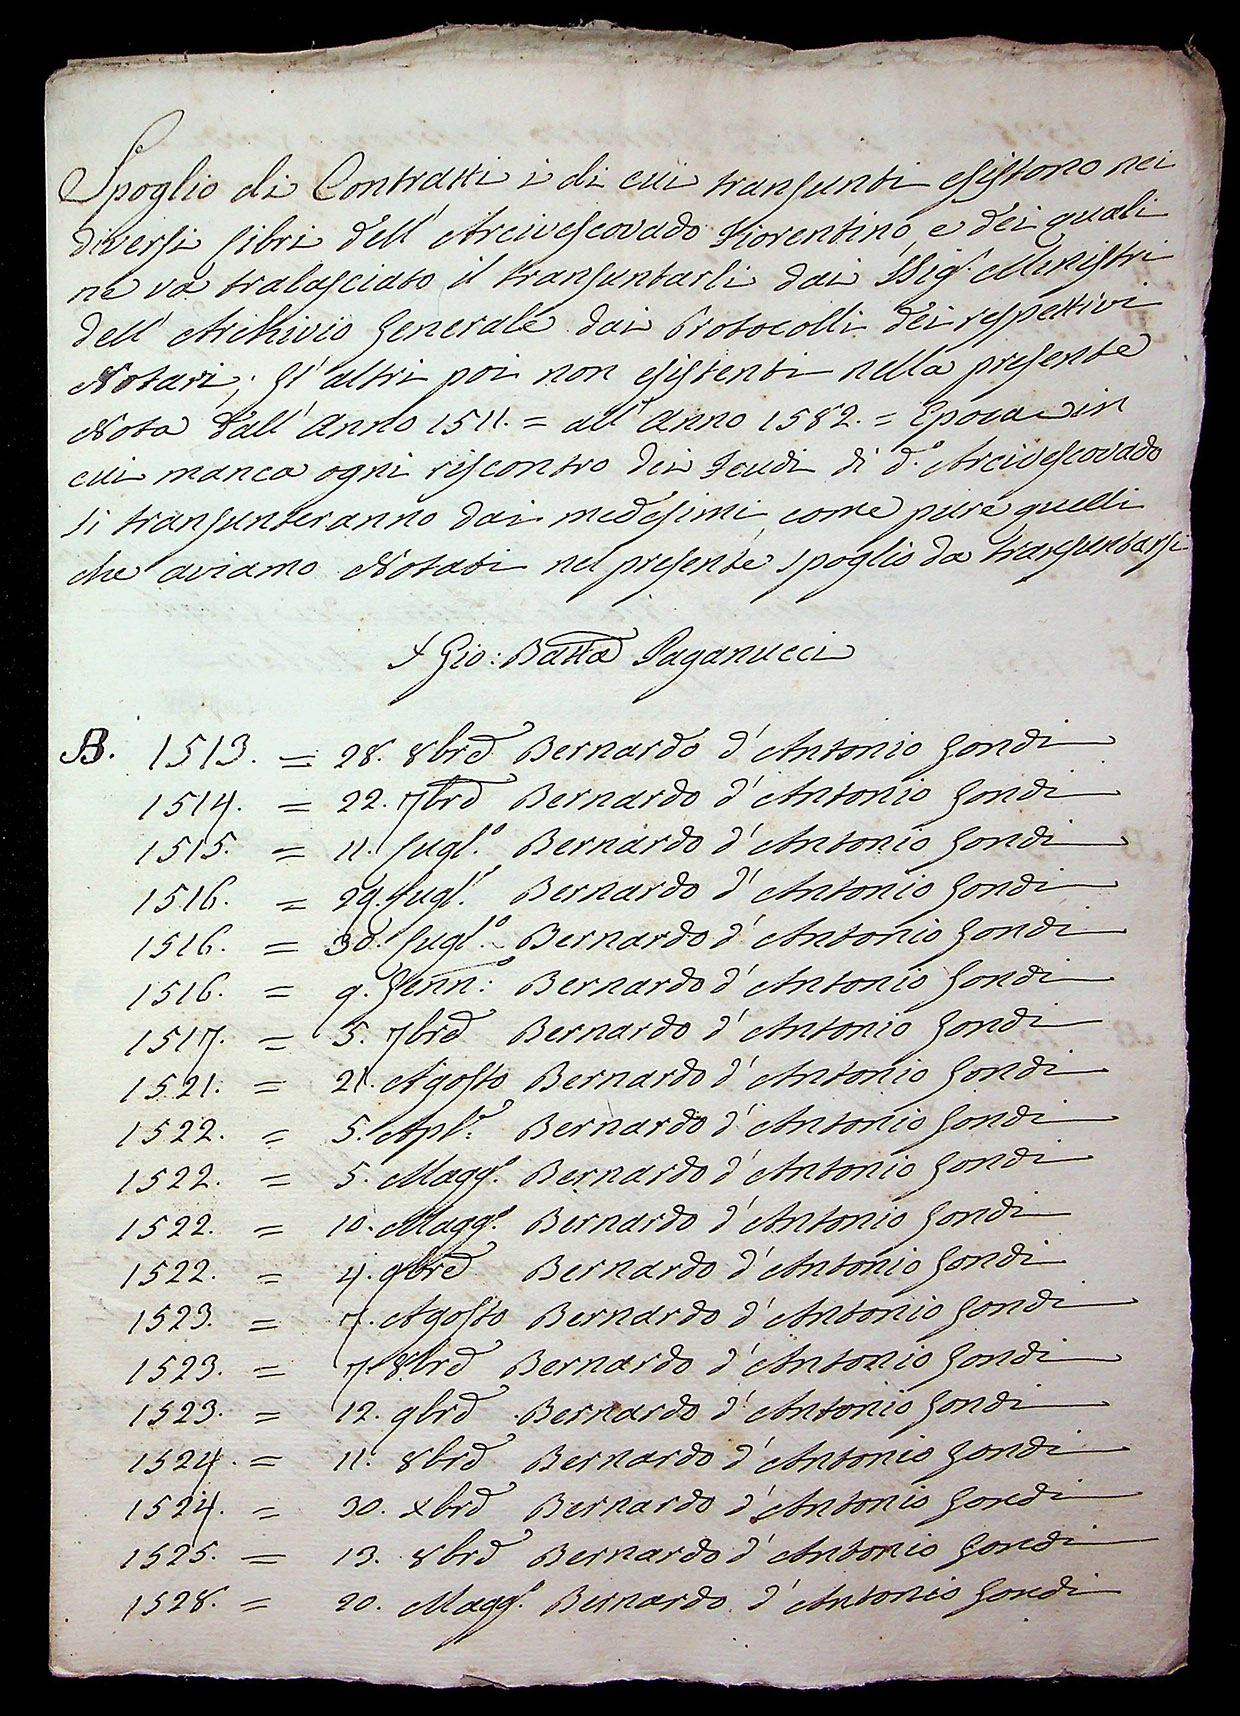 Spoglio di Contratti i di cui transunti esistono nei
diversi libri dell' Arcivescovado Fiorentino, e dei quali
ne va tralasciato il transuntarli dai SSig.ri Ministri
dell' Archivio Generale dai Protocolli dei respettivi
Notari; gl' altri poi non esistenti nella presente
Nota dall' Anno 1511. = all' Anno 1582. = Epoca in
cui manca ogni riscontro dei Feudi di d.o Arcivescovado
si transunteranno dai medesimi, come pure quelli
che aviamo Notati nel presente spoglio da transuntarsi
Gio: Batta Paganucci
B. 1513. = 28. 8bre Bernardo d' Antonio Gondi
1514. = 22. 7bre Bernardo d' Antonio Gondi
1515. = 11. Lugl.o Bernardo d' Antonio Gondi
1516. = 29. Lugl.o Bernardo d' Antonio Gondi
1516. = 30. Lugl.o Bernardo d' Antonio Gondi
1516. = 9. Genn:o Bernardo d' Antonio Gondi
1517. = 5. 7bre Bernardo d' Antonio Gondi
1521. = 21. Agosto Bernardo d' Antonio Gondi
1522. = 5. Apl.e Bernardo d' Antonio Gondi
1522. = 5. Magg.o Bernardo d' Antonio Gondi
1522. = 10. Magg.o Bernardo d' Antonio Gondi
1522. = 4. 9bre Bernardo d' Antonio Gondi
1523. = 7. Agosto Bernardo d' Antonio Gondi
1523. = 7. 8bre Bernardo d' Antonio Gondi
1523. = 12. 9bre Bernardo d' Antonio Gondi
1524. = 11. 8bre Bernardo d' Antonio Gondi
1524. = 30. xbre Bernardo d' Antonio Gondi
1525. = 13. 8bre Bernardo d' Antonio Gondi
1528. = 20. Magg.o Bernardo d' Antonio Gondi